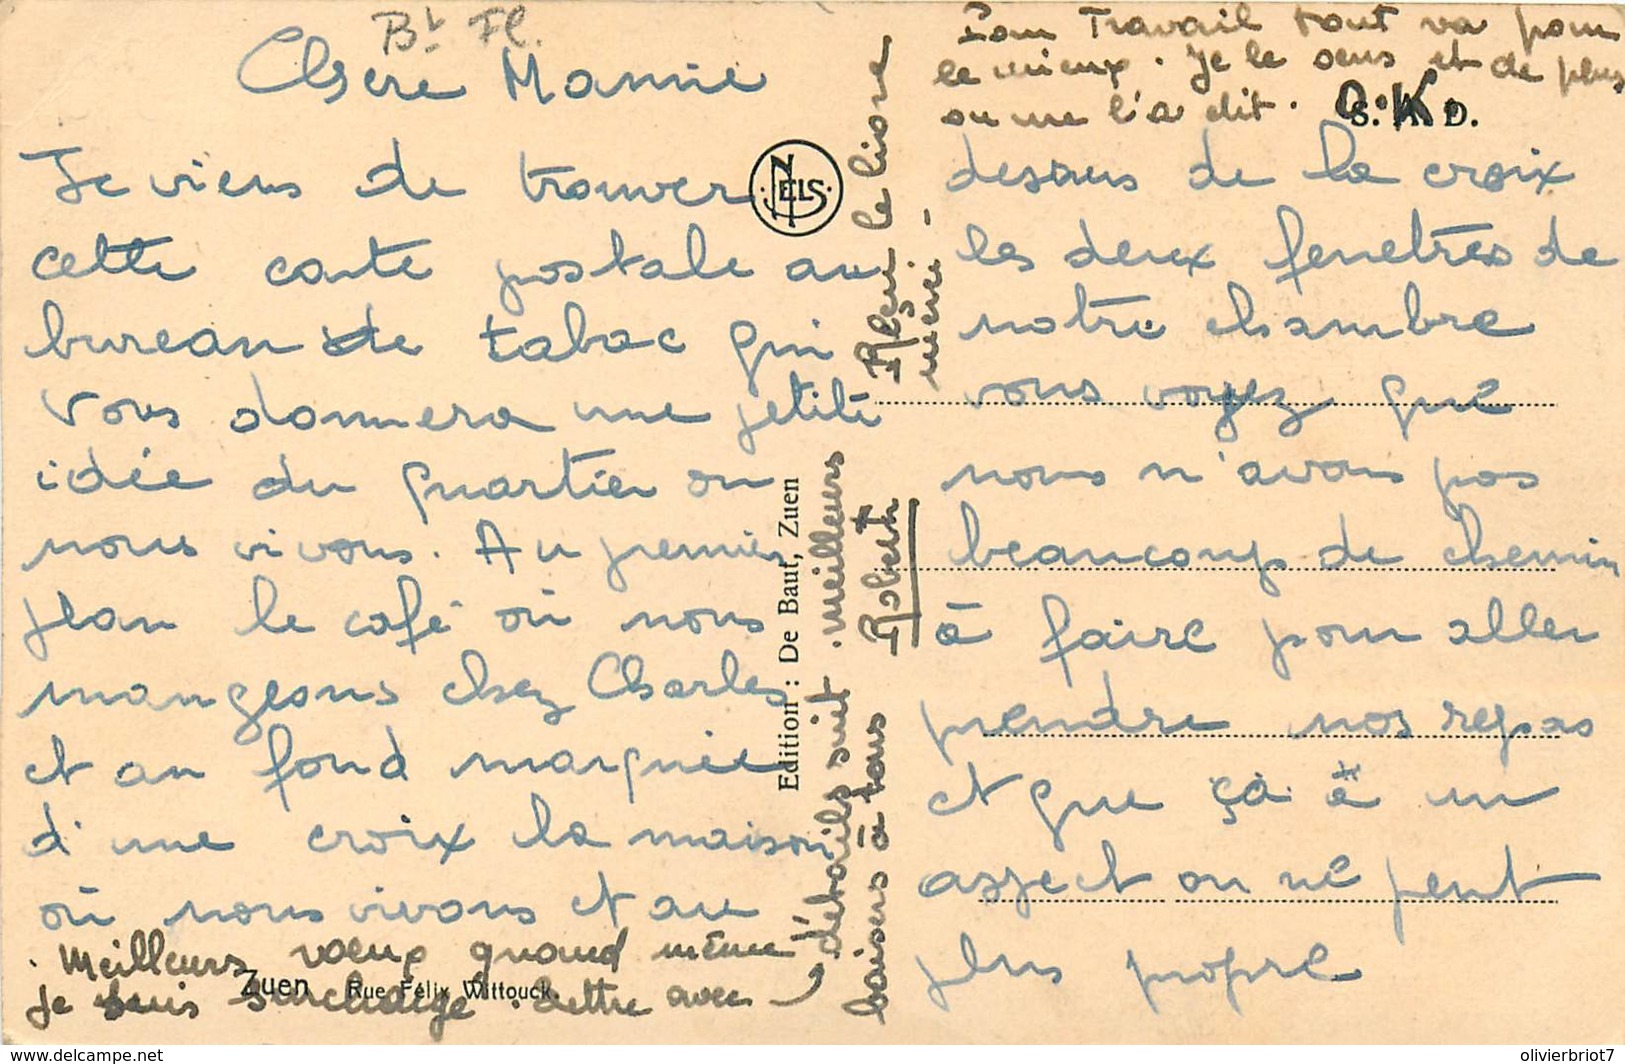 Bt Fl.
Chere Mamie
Je viens de trouver
cette carte postale au
bureau de tabac qui
vous donnera une petite
idée du quartier ou
nous vivons. Au premier
plan le café où nous
mangeons chez Charles
et au fond marquée
d'une croix la maison
où nous vivons et au
dessus de la croix
les deux fenetres de
notre chambre
vous voyez que
nous n'avons pas
beaucoup de chemin
à faire pour aller
prendre nos repas
et que çà à un
aspect on ne peut
plus propre
Pour Travail tout va pour
le mieux. Je le sens et de plus
on me l'a dit. O.K.
S. A. D.
NELS
Edition : De Baut, Zuen
Zuen Rue Félix Wittouck.
Meilleurs vœux quand même
je suis surchargé. Lettre avec
détails suit. meilleurs
baisers à tous Robert
Reçu le livre
merci.
https://www.delcampe.net
olivierbriot7